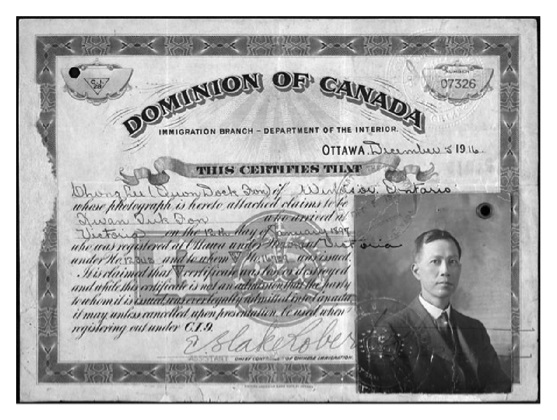 NUMBER
07326
DOMINION OF CANADA
IMMIGRATION BRANCH - DEPARTMENT OF THE INTERIOR.
OTTAWA, December 5 1916
THIS CERTIFIES THAT
Chong Lee (Quon Dock Fon) of Windsor, Ontario
whose photograph is hereto attached claims to be
who arrived in
Victoria on the 12th day of January
who was registered at Ottawa under No. Victoria
under No. and to whom was issued.
It is claimed that certificate was lost or destroyed
and while this certificate is not an admission that the party
to whom it is issued was ever legally admitted into Canada,
it may unless cancelled upon presentation, be used when
registering out under C.I.9.
ASSISTANT CHIEF CONTROLLER OF CHINESE IMMIGRATION